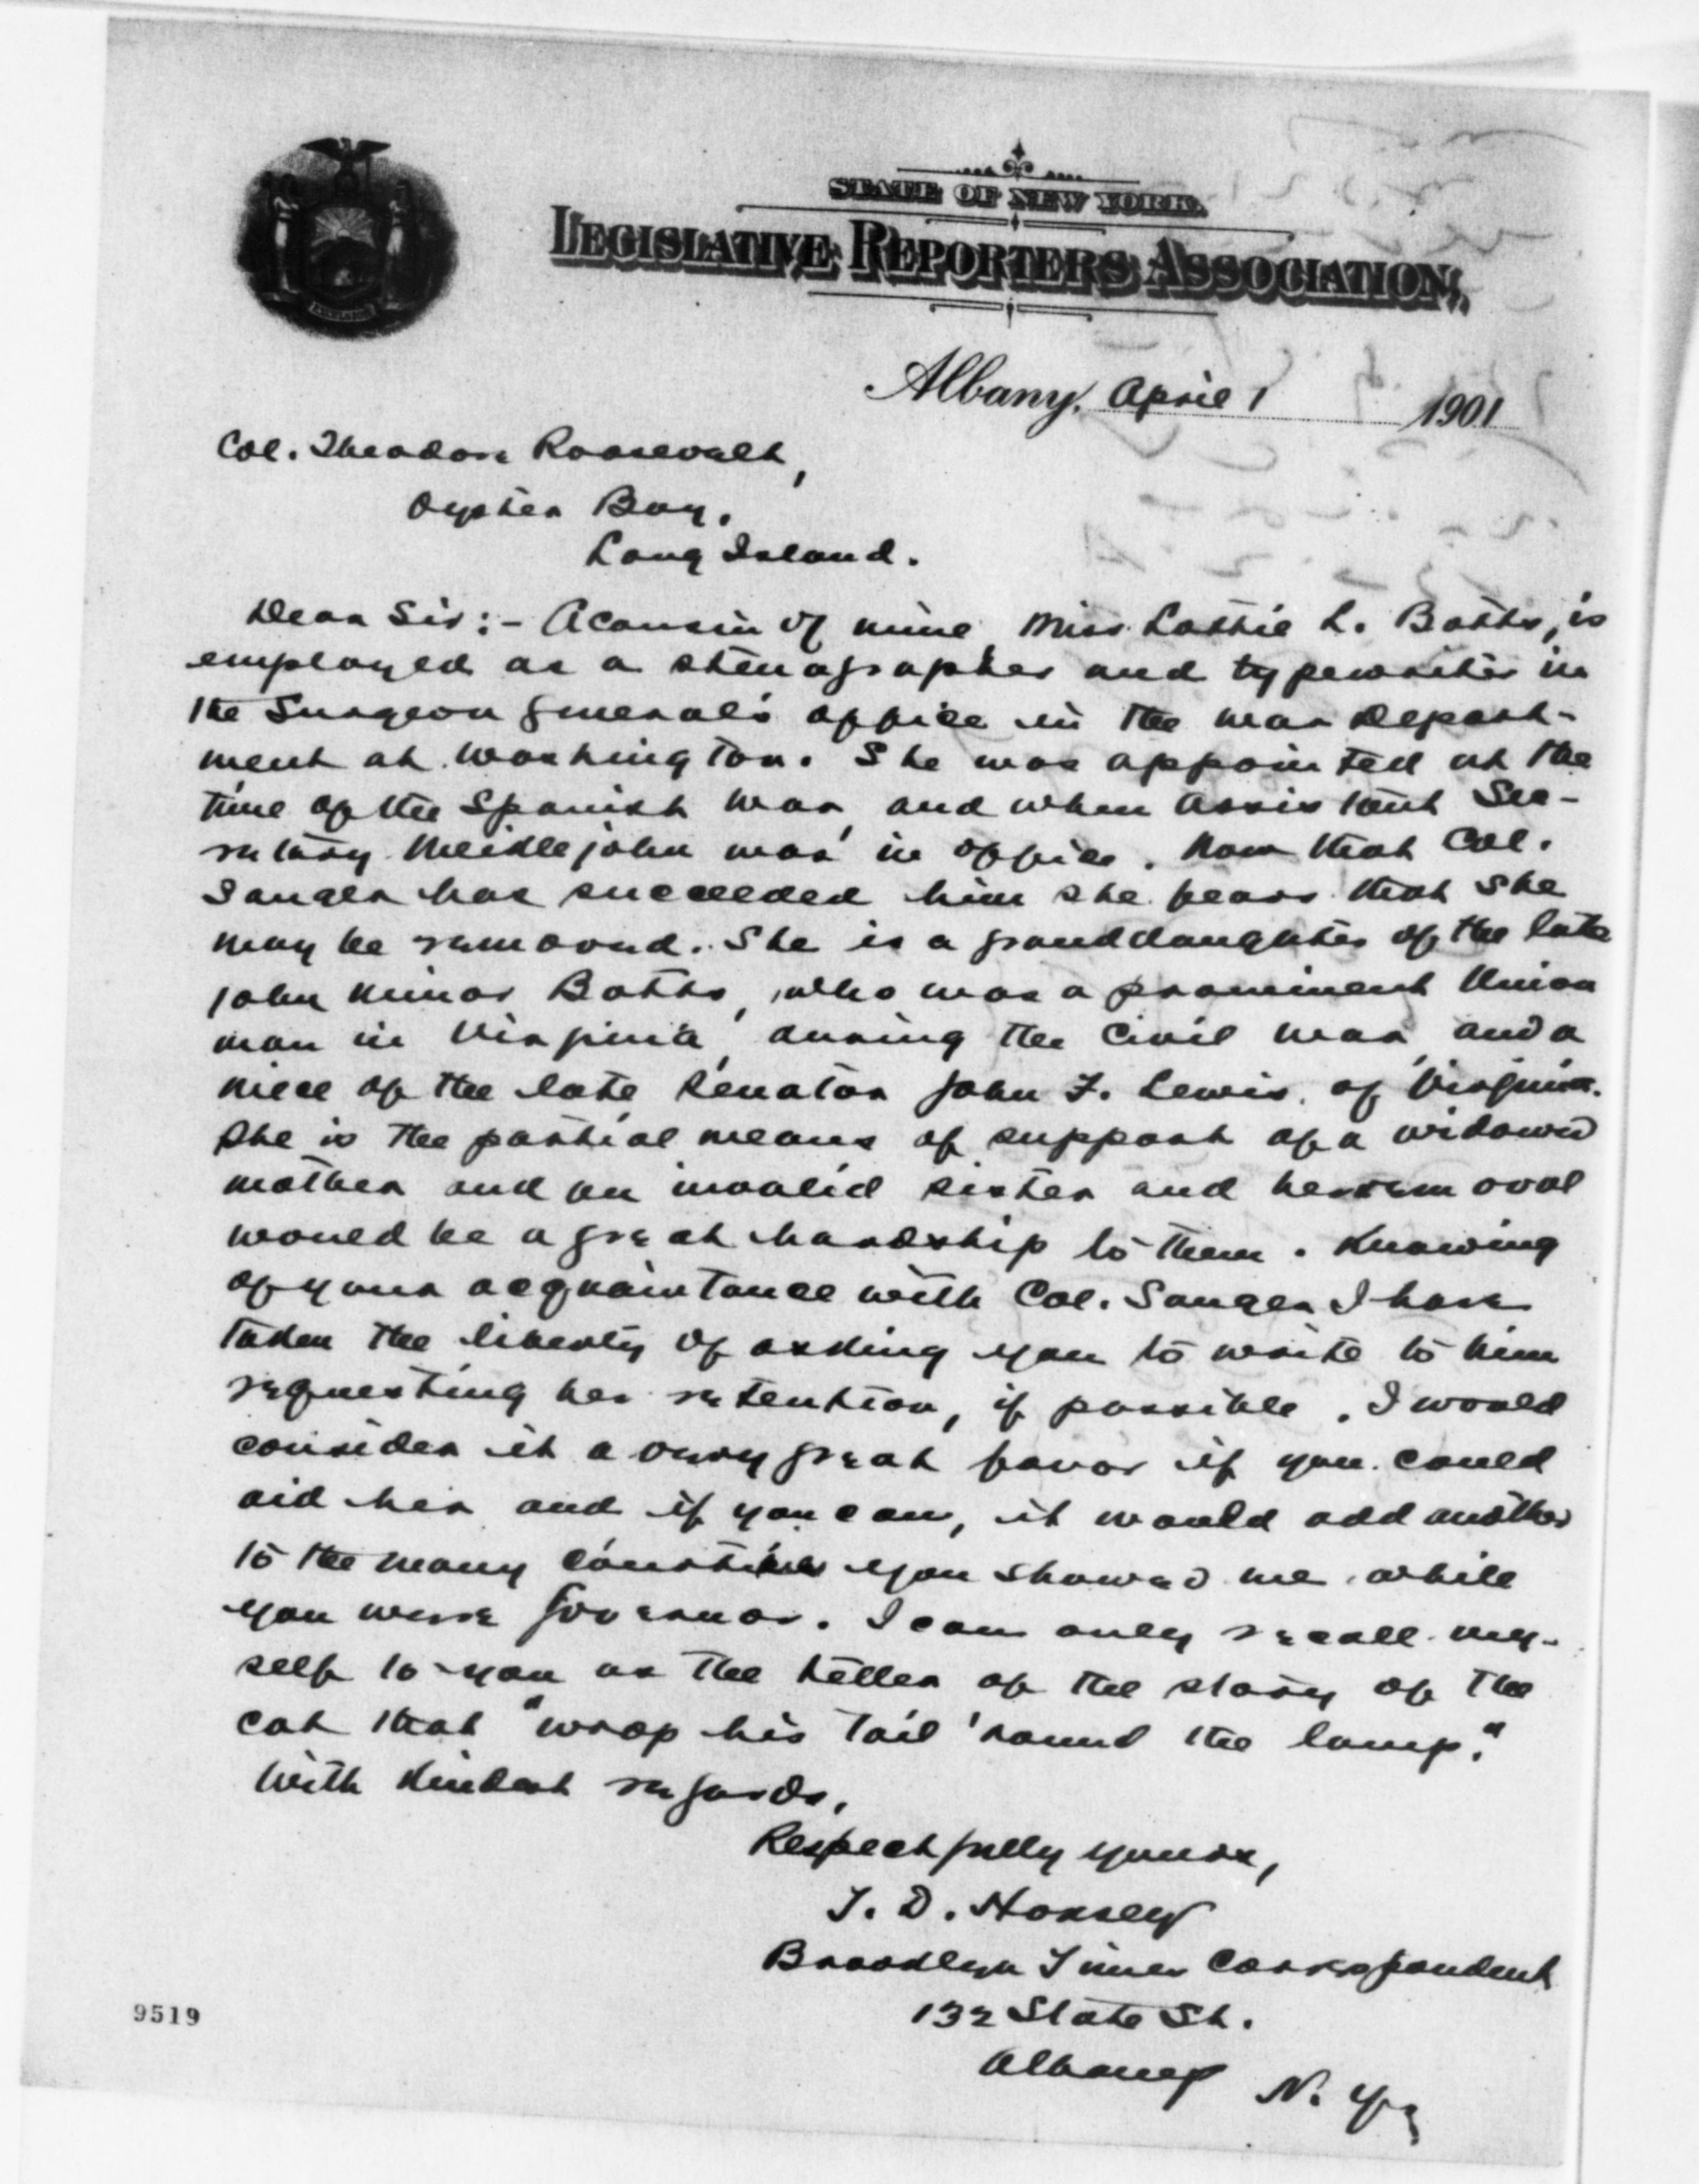 STATE OF NEW YORK.
LEGISLATIVE REPORTERS ASSOCIATION,
EXCELSIOR
Albany, April 1 1901
Col. Theodore Roosevelt,
Oyster Bay,
Long Island.
Dear Sir:- A cousin of mine, Miss Lottie L. Botts, is
employed as a stenographer and typewriter in
the Surgeon General's office in the War Depart-
ment at Washington. She was appointed at the
time of the Spanish war, and when Assistant Sec-
retary Meiklejohn was in office. Now that Col.
Sanger has succeeded him she fears that she
may be removed. She is a granddaughter of the late
John Minor Botts, who was a prominent Union
man in Virginia, during the Civil War, and a
niece of the late Senator John F. Lewis, of Virginia.
She is the partial means of support of a widowed
mother and an invalid sister and her removal
would be a great hardship to them. Knowing
of your acquaintance with Col. Sanger I have
taken the liberty of asking you to write to him
requesting her retention, if possible. I would
consider it a very great favor if you could
aid her and if you can, it would add another
to the many courtesies you showed me while
you were Governor. I can only recall my-
self to you as the teller of the story of the
cat that "wrop his tail 'round the lamp."
With kindest regards,
Respectfully yours,
T. D. Hoxsey
Brooklyn Times Correspondent
132 State St.
Albany N. Y.
9519